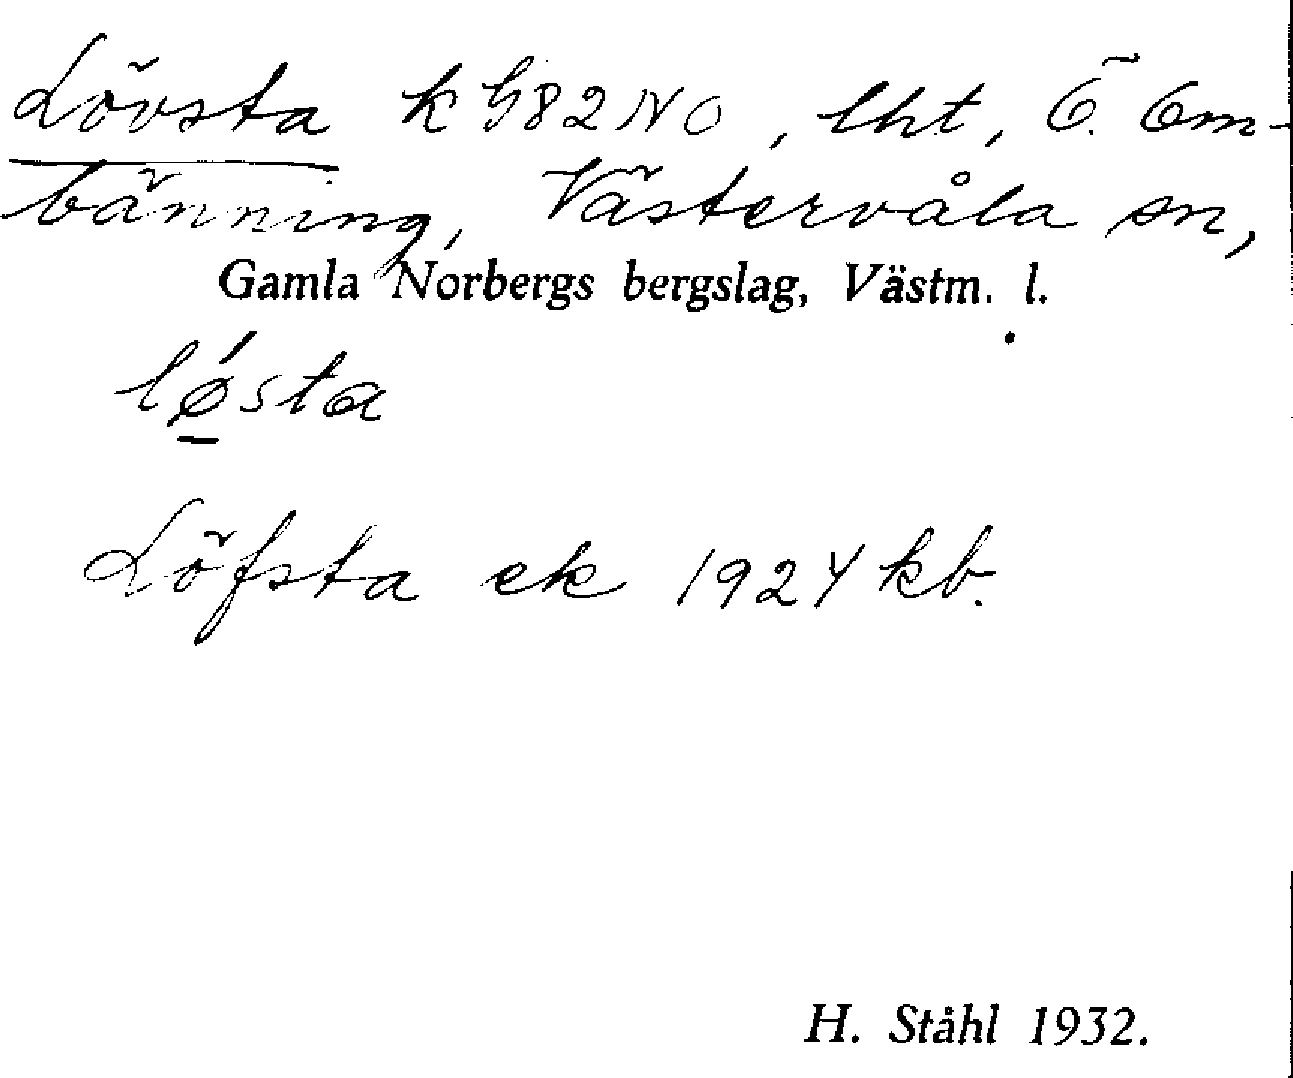 Lövsta k G82NO, lht, Ö. Em-
bänning, Västervåla sn,
Gamla Norbergs bergslag, Västm. l.
lǿ̱sta
Löfsta ek 1924 kb.
H. Ståhl 1932.